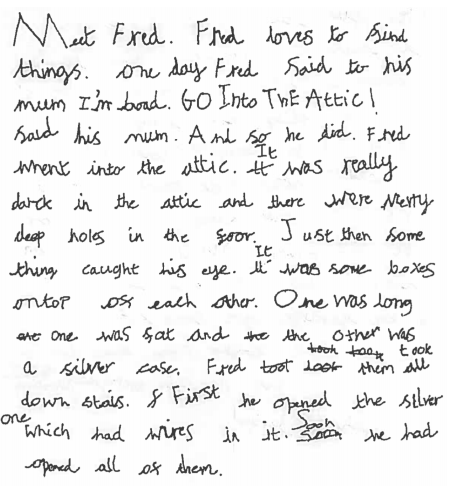 Meet Fred. Fred loves to find
things. one day Fred said to his
mum I'm boad. GO Into ThE Attic!
said his mum. And so he did. Fred
whent into the attic. It was really
darck in the attic and there were verry
deep holes in the foor. Just then some
thing caught his eye. It was some boxes
ontop off each other. One was long
one was fat and the other was
a silver case. Fred took them all
down stais. First he opened the silver
one which had wires in it. Soon he had
opened all of them.